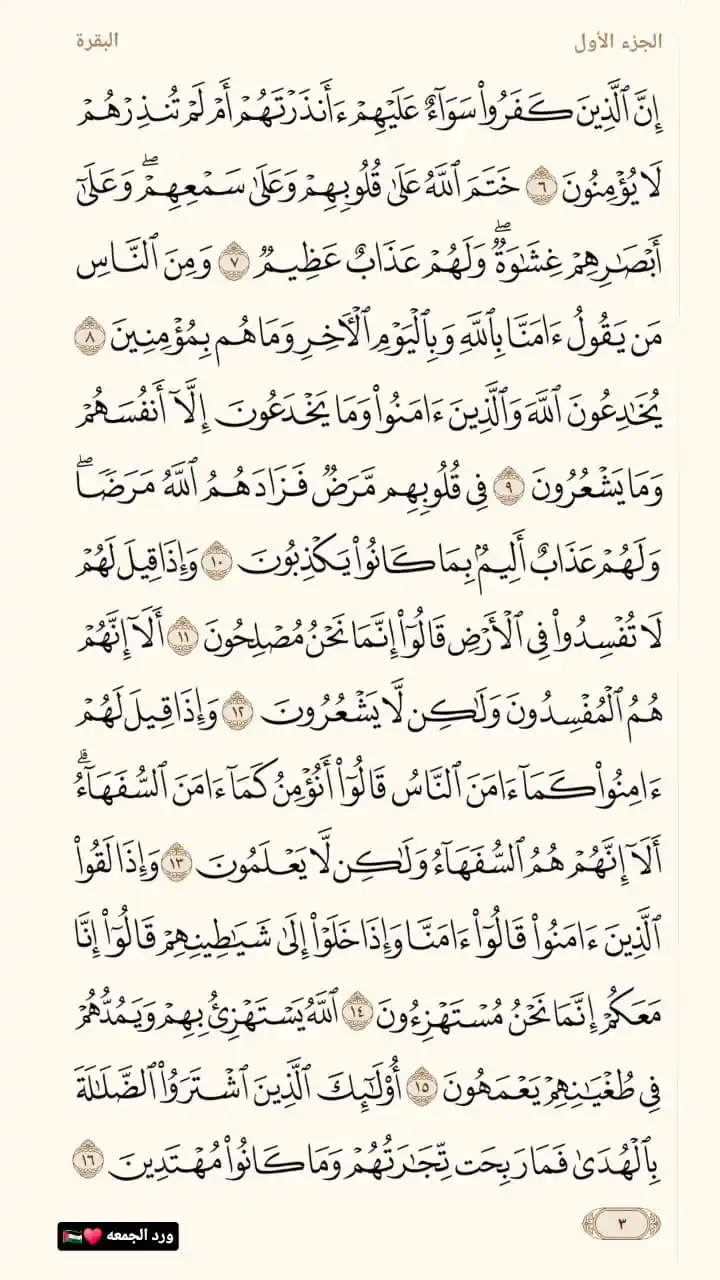 الجزء الأول
البقرة
إِنَّ ٱلَّذِينَ كَفَرُوا۟ سَوَآءٌ عَلَيْهِمْ ءَأَنذَرْتَهُمْ أَمْ لَمْ تُنذِرْهُمْ
لَا يُؤْمِنُونَ ٦ خَتَمَ ٱللَّهُ عَلَىٰ قُلُوبِهِمْ وَعَلَىٰ سَمْعِهِمْ ۖ وَعَلَىٰٓ
أَبْصَـٰرِهِمْ غِشَـٰوَةٌ ۖ وَلَهُمْ عَذَابٌ عَظِيمٌ ٧ وَمِنَ ٱلنَّاسِ
مَن يَقُولُ ءَامَنَّا بِٱللَّهِ وَبِٱلْيَوْمِ ٱلْـَٔاخِرِ وَمَا هُم بِمُؤْمِنِينَ ٨
يُخَـٰدِعُونَ ٱللَّهَ وَٱلَّذِينَ ءَامَنُوا۟ وَمَا يَخْدَعُونَ إِلَّآ أَنفُسَهُمْ
وَمَا يَشْعُرُونَ ٩ فِى قُلُوبِهِم مَّرَضٌ فَزَادَهُمُ ٱللَّهُ مَرَضًا ۖ
وَلَهُمْ عَذَابٌ أَلِيمٌۢ بِمَا كَانُوا۟ يَكْذِبُونَ ١٠ وَإِذَا قِيلَ لَهُمْ
لَا تُفْسِدُوا۟ فِى ٱلْأَرْضِ قَالُوٓا۟ إِنَّمَا نَحْنُ مُصْلِحُونَ ١١ أَلَآ إِنَّهُمْ
هُمُ ٱلْمُفْسِدُونَ وَلَـٰكِن لَّا يَشْعُرُونَ ١٢ وَإِذَا قِيلَ لَهُمْ
ءَامِنُوا۟ كَمَآ ءَامَنَ ٱلنَّاسُ قَالُوٓا۟ أَنُؤْمِنُ كَمَآ ءَامَنَ ٱلسُّفَهَآءُ ۗ
أَلَآ إِنَّهُمْ هُمُ ٱلسُّفَهَآءُ وَلَـٰكِن لَّا يَعْلَمُونَ ١٣ وَإِذَا لَقُوا۟
ٱلَّذِينَ ءَامَنُوا۟ قَالُوٓا۟ ءَامَنَّا وَإِذَا خَلَوْا۟ إِلَىٰ شَيَـٰطِينِهِمْ قَالُوٓا۟ إِنَّا
مَعَكُمْ إِنَّمَا نَحْنُ مُسْتَهْزِءُونَ ١٤ ٱللَّهُ يَسْتَهْزِئُ بِهِمْ وَيَمُدُّهُمْ
فِى طُغْيَـٰنِهِمْ يَعْمَهُونَ ١٥ أُو۟لَـٰٓئِكَ ٱلَّذِينَ ٱشْتَرَوُا۟ ٱلضَّلَـٰلَةَ
بِٱلْهُدَىٰ فَمَا رَبِحَت تِّجَـٰرَتُهُمْ وَمَا كَانُوا۟ مُهْتَدِينَ ١٦
٣
ورد الجمعه ♥️🇵🇸